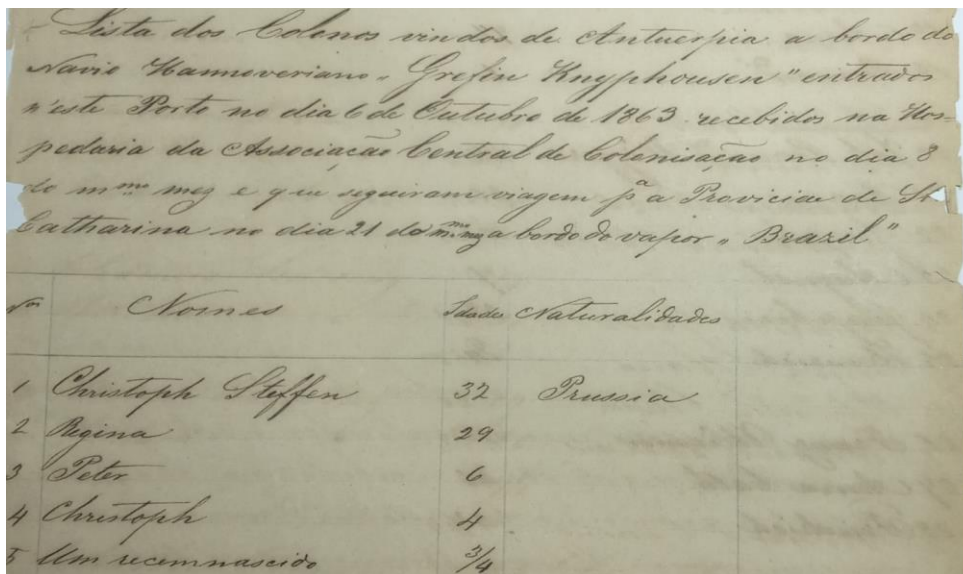 Lista dos Colonos vindos de Antuerpia a bordo do
Navio Hannoveriano "Grefin Knyphousen" entrados
n'este Porto no dia 6 de Outubro de 1863 recebidos na Hos-
pedaria da Associação Central de Colonisação no dia 8
do m.mo mez e que seguiram viagem p.a a Provicia de St.
Catharina no dia 21 do m.mo mez a bordo do vapor "Brazil"
Nos Nomes Idades Naturalidades
1 Christoph Steffen 32 Prussia
2 Regina 29
3 Peter 6
4 Christoph 4
5 Um recemnascido 3/4